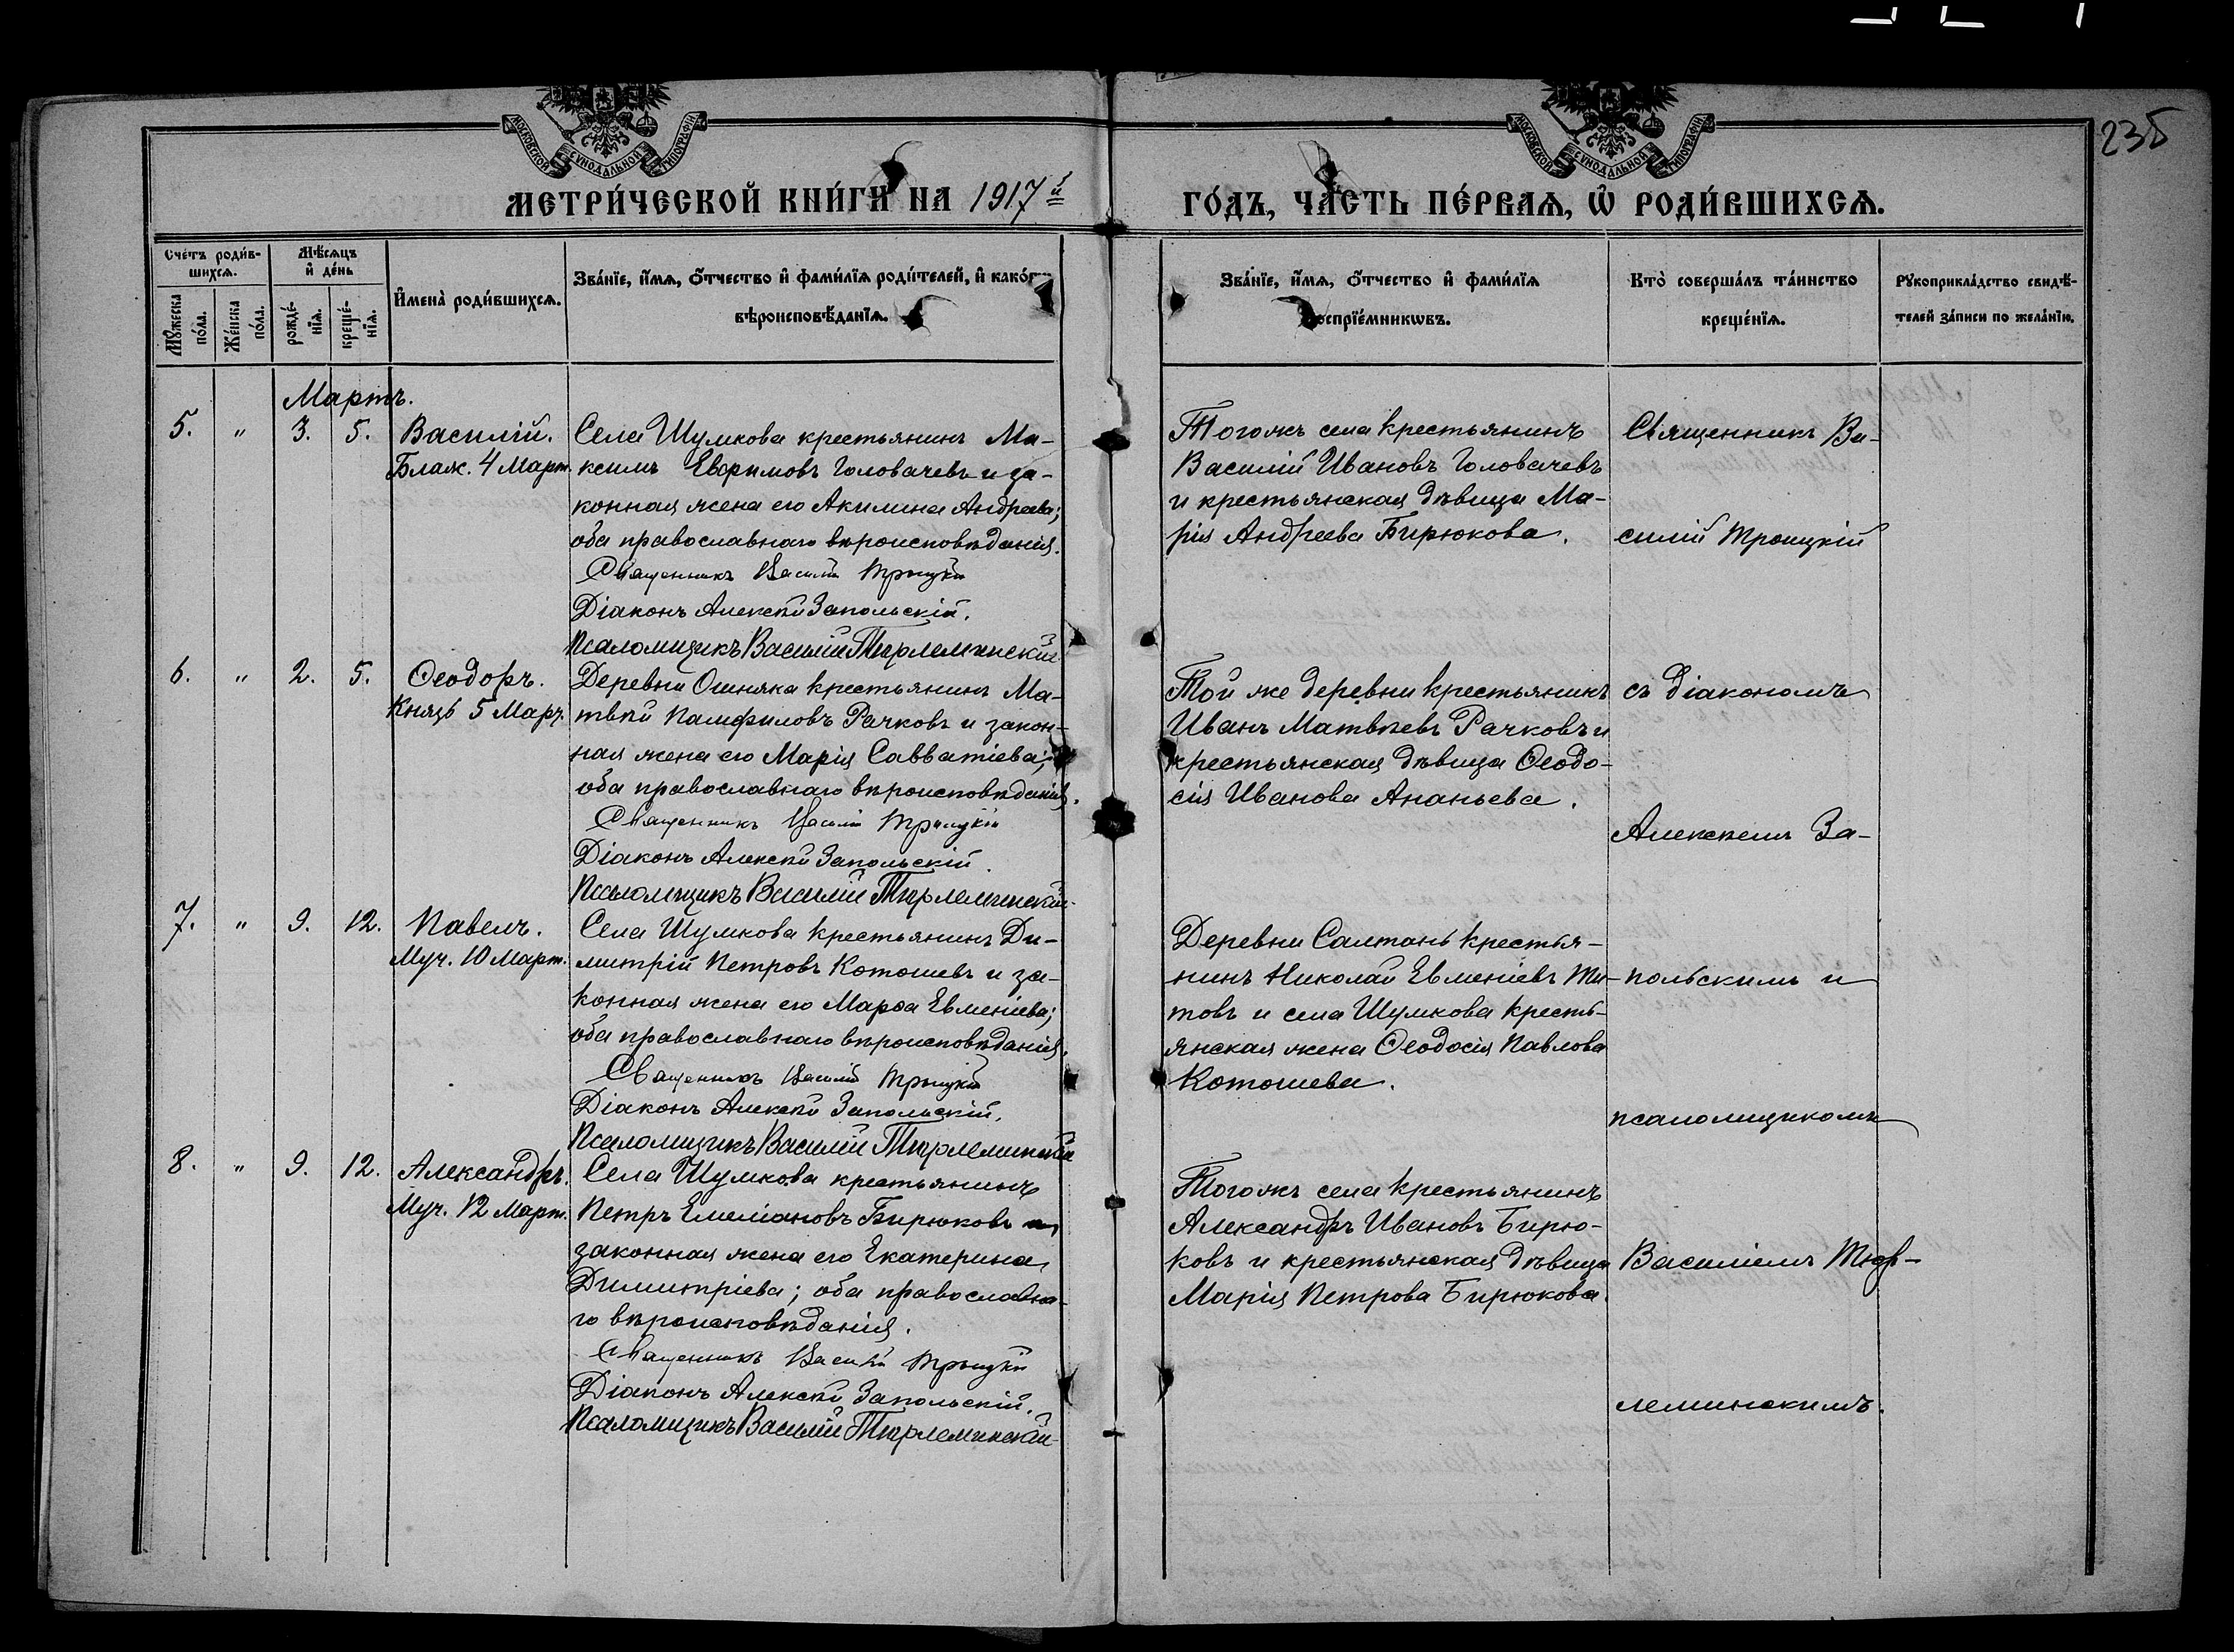 235
МОСКОВСКОЙ СУНОДАЛЬНОЙ ТИПОГРАФІИ
МОСКОВСКОЙ СУНОДАЛЬНОЙ ТИПОГРАФІИ
МЕТРИ́ЧЕСКОЙ КНИ́ГИ НА 1917й
ГО́ДЪ, ЧА́СТЬ ПЕ́РВАѦ, Ѡ҆ РОДИ́ВШИХСѦ.
Сче́тъ роди́в-
шихсѧ.
Мꙋжеска по́ла.
Же́нска по́ла.
Мѣ́сѧцъ
и҆ де́нь
рожде́-
нїѧ.
креще́-
нїѧ.
И҆мена̀ роди́вшихсѧ.
Зва́нїе, и҆́мѧ, ѻ҆́тчество и҆ фами́лїѧ роди́телей, и҆ како́гѡ
вѣроисповѣ́данїѧ.
Зва́нїе, и҆́мѧ, ѻ҆́тчество и҆ фами́лїѧ
воспрїе́мникѡвъ.
Кто̀ соверша́лъ та́инство
креще́нїѧ.
Рꙋкоприкла́дство свидѣ́-
телей за́писи по жела́нїю.
Мартъ.
5. " 3. 5. Василій.
Блаж. 4 Март.
Села Шумкова крестьянинъ Ма-
ксимъ Евѳимовъ Головачевъ и за-
конная жена его Акилина Андреева;
оба православнаго вѣроисповѣданія.
Священникъ Василій Троицкій
Діаконъ Алексѣй Запольскій.
Псаломщикъ Василій Тюрлеминскій
Тогожъ села крестьянинъ
Василій Ивановъ Головачевъ
и крестьянская дѣвица Ма-
рія Андреева Бирюкова.
Священникъ Ва-
силій Троицкій
6. " 2. 5. Ѳеодоръ.
Князь 5 Март.
Деревни Ошняка крестьянинъ Ма-
твѣй Памфиловъ Рачковъ и закон-
ная жена его Марія Савватіева;
оба православнаго вѣроисповѣданія.
Священникъ Василій Троицкій
Діаконъ Алексѣй Запольскій.
Псаломщикъ Василій Тюрлеминскій
Той же деревни крестьянинъ
Иванъ Матвѣевъ Рачковъ и
крестьянская дѣвица Ѳеодо-
сія Иванова Ананьева.
съ діакономъ
Алексѣемъ За-
7. " 9. 12. Павелъ.
Муч. 10 Март.
Села Шумкова крестьянинъ Ди-
митрій Петровъ Котошевъ и за-
конная жена его Марѳа Евменіева;
оба православнаго вѣроисповѣданія.
Священникъ Василій Троицкій
Діаконъ Алексѣй Запольскій.
Псаломщикъ Василій Тюрлеминскій
Деревни Салтанъ крестья-
нинъ Николай Евменіевъ Ти-
товъ и села Шумкова кресть-
янская жена Ѳеодосія Павлова
Котошева.
польскимъ и
псаломщикомъ
8. " 9. 12. Александръ.
Муч. 12 Март.
Села Шумкова крестьянинъ
Петръ Емеліановъ Бирюковъ и
законная жена его Екатерина
Димитріева; оба православна-
го вѣроисповѣданія.
Священникъ Василій Троицкій
Діаконъ Алексѣй Запольскій.
Псаломщикъ Василій Тюрлеминскій
Тогожъ села крестьянинъ
Александръ Ивановъ Бирю-
ковъ и крестьянская дѣвица
Марія Петрова Бирюкова.
Василіемъ Тюр-
леминскимъ.